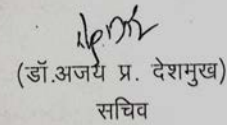 (डॉ.अजय प्र. देशमुख)
सचिव